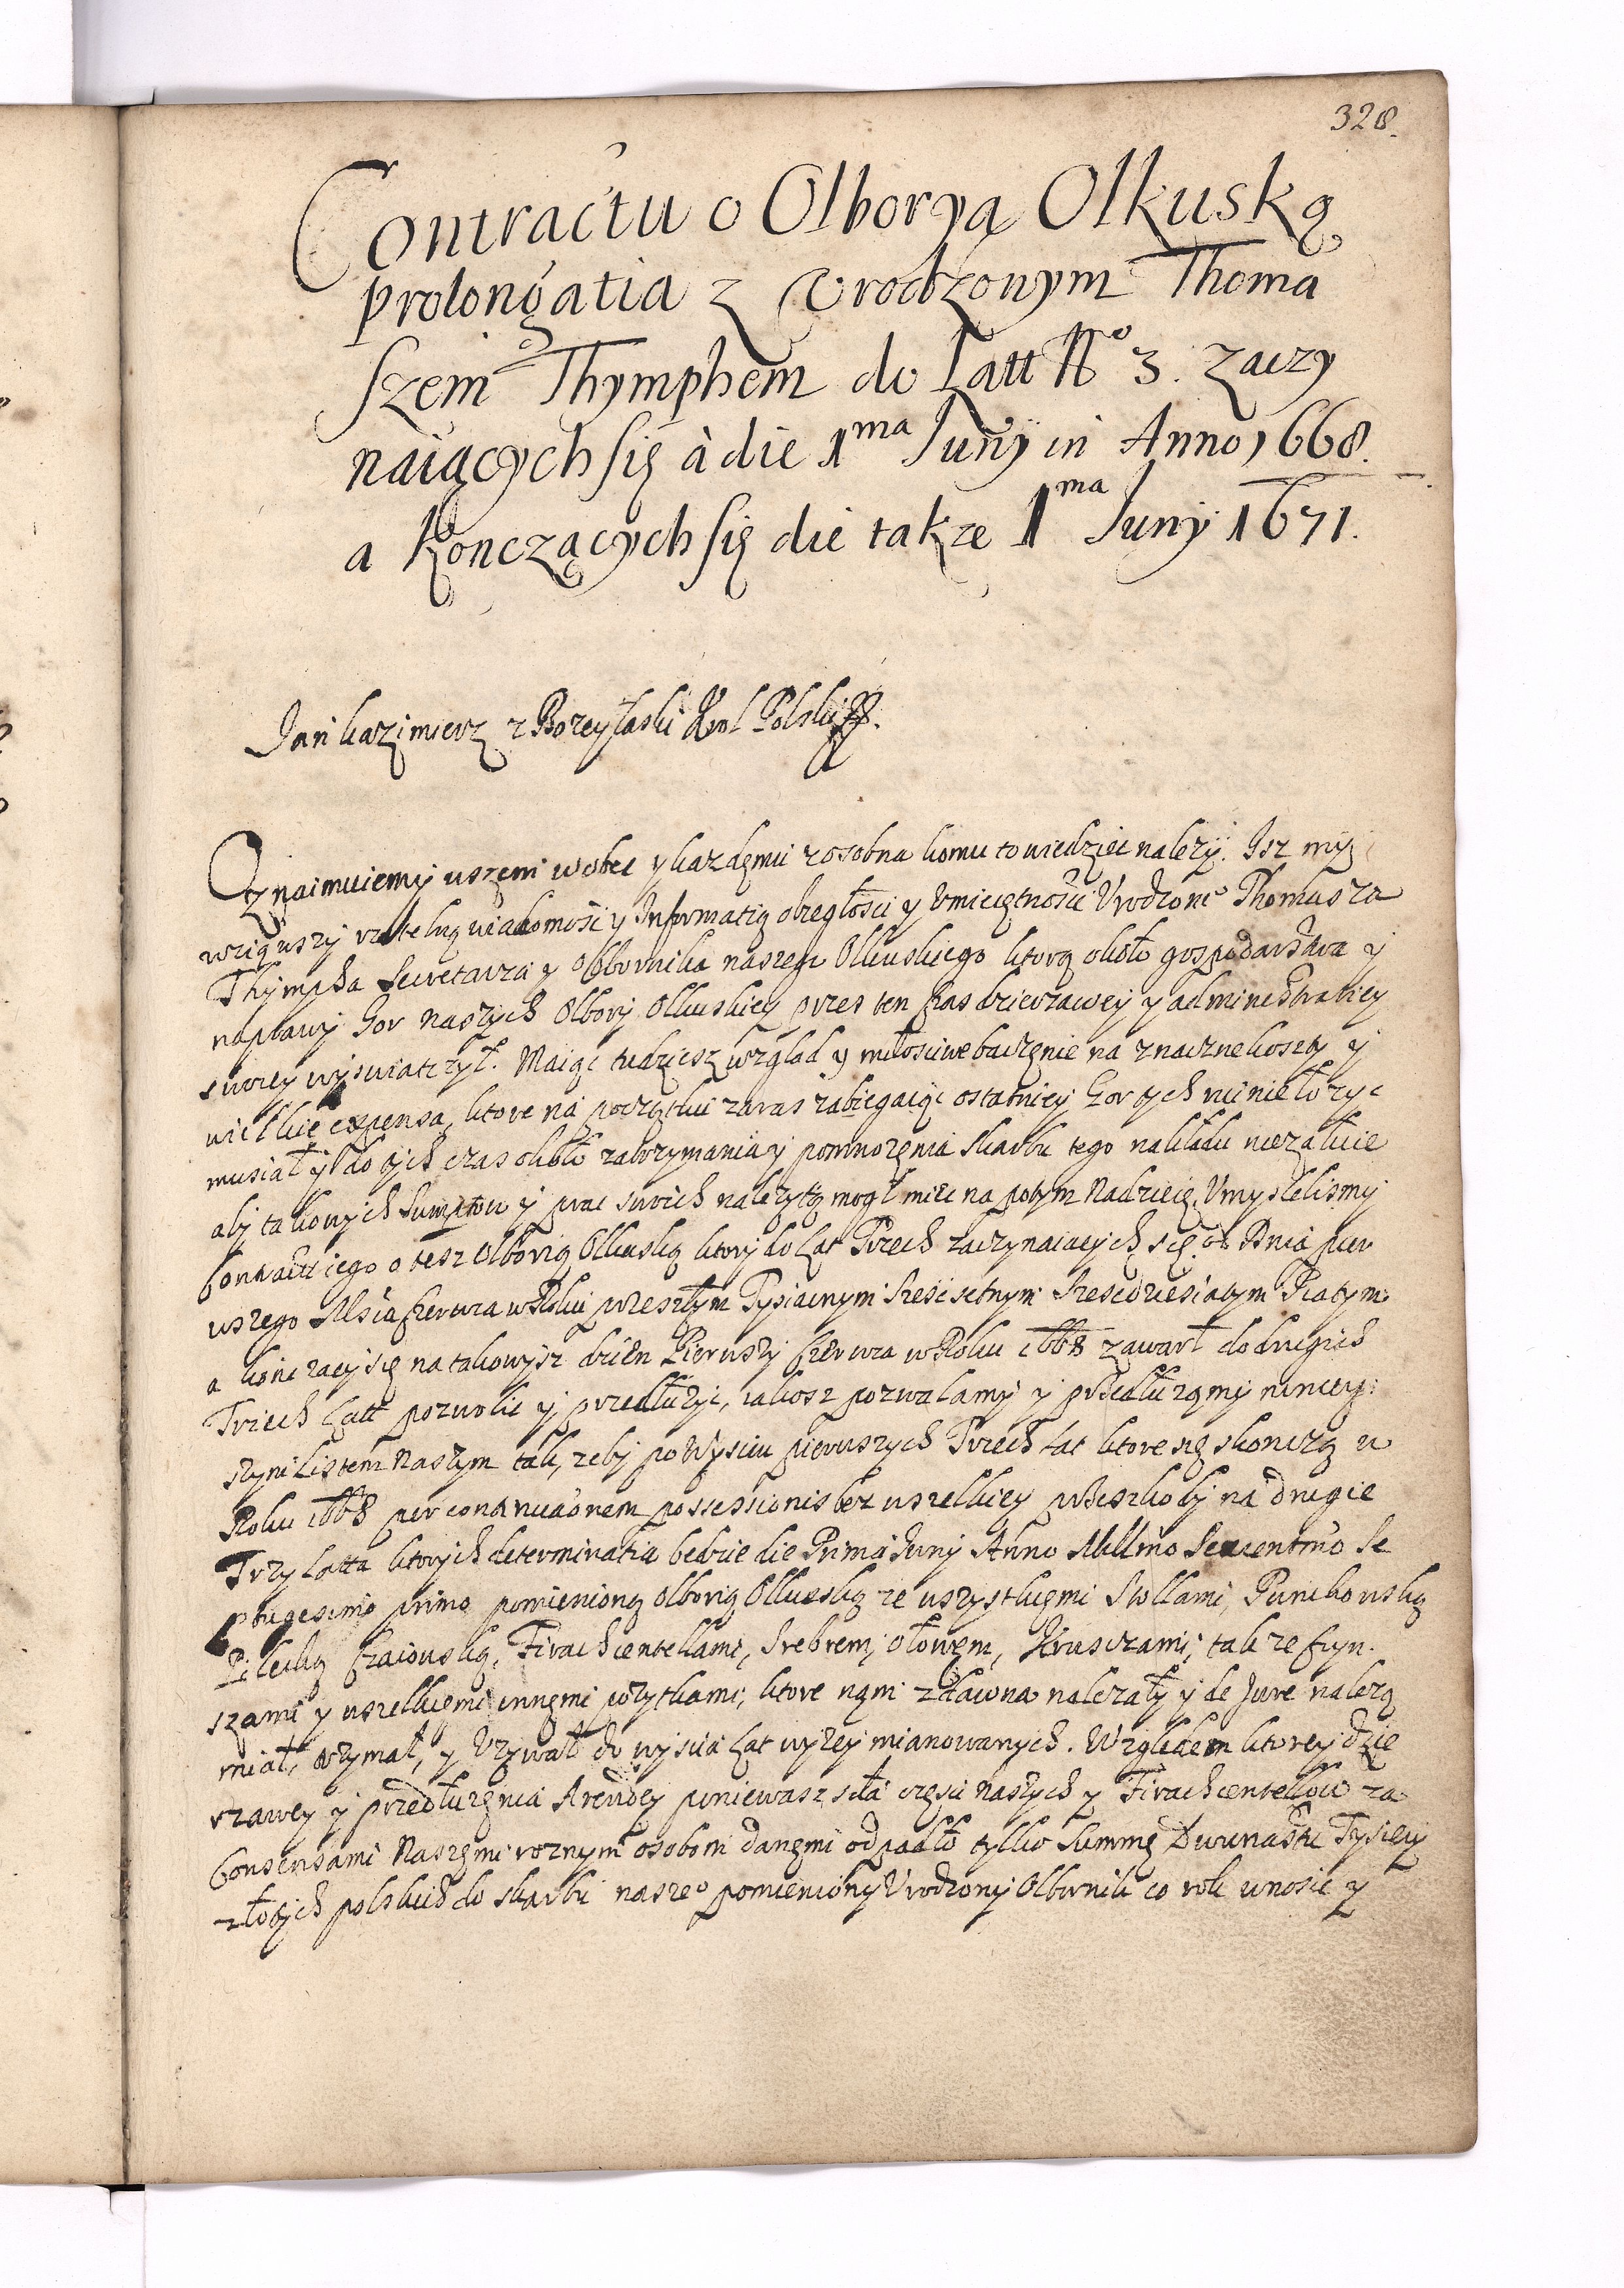 328.
Contractu o Olboryą Olkuską
prolongatia z Vrodzonym Thoma
szem Thymphem do Latt No 3. zaczy
naiących się à die 1ma Juny in Anno 1668.
a Konczących się die takze 1ma Juny 1671.
Jan Kazimierz z Bozey łaski Krol Polski
Oznaimuiemy wszem wobec y kazdemu zosobna komu to wiedziec nalezy. Isz my
wziąwszy rzetelną wiadomość y Informatią obiegłości y Vmieiętności Vrodzone Thomasza
Thympha Secretarza y Olbornika naszego Olkuskiego ktorą około gospodarstwa y
naprawy Gor naszych Olbory Olkuskiey przes ten czas dzierzawey y administratiey
swoiey wyswiatczył. Maiąc tudziesz wzgląd y miłosciwe baczenie na znaczne koszty y
wielkie expensa, ktore na początku zaras zabiegaiąc ostatniey Gor tych ruinie łozyc
musiał y do tych czas około zatrzymania y pomnozenia skarbu tego nakładu niezałuie
aby takowych sumptow y prac swoich nalezytą mogł miec na potym Nadzieię. Vmyslelismy
Contract iego o tesz Olborią Olkuską ktory do Lat Trzech zaczynaiących się od Dnia pier
wszego Msca Czerwca w Roku przeszłym Tysiącnym Szescsetnym Szescdziesiątym Piątym
a konczący się na takowysz dzien Pierwszy Czerwca w Roku 1668 zawarł do drugich
Trzech Latt pozwolic y przedłuzyc, iakosz pozwalamy y przedłuzamy ninieÿ
szym Listem Naszym tak, zeby po Wysciu pierwszych Trzech Lat ktore się skonczą w
Roku 1668 per continuaonem possessionis bez wszelkiey przeszkody na drugie
Trzy Latta ktorych determinatia bedzie die Prima Juny Anno Millmo Sexcentmo Se
ptuagesimo primo pomienioną Olborią Olkuską ze wszystkiemi Stollami, Ponikowską
Pilecką Czaiowską, Firachcentellami, Srebrem, ołowem, Kruszcami, takze Czyn
szami y wszelkiemi innemi pozytkami, ktore nam zdawna nalezały y de Jure nalezą
miał, trzymał, y Vzywał do wyscia Lat wyzey mianowanych. Względem ktorey dzie
rzawey y przedłuzenia Arendy poniewasz siła częsci Naszych y Firachcentellow za
Consensami Naszemi roznym osobom danemi odpadło tylko Summę Dwanascie Tysięcy
złotych polskich do skarbu nasze° pomieniony Vrodzony Olbornik co rok wnosic y